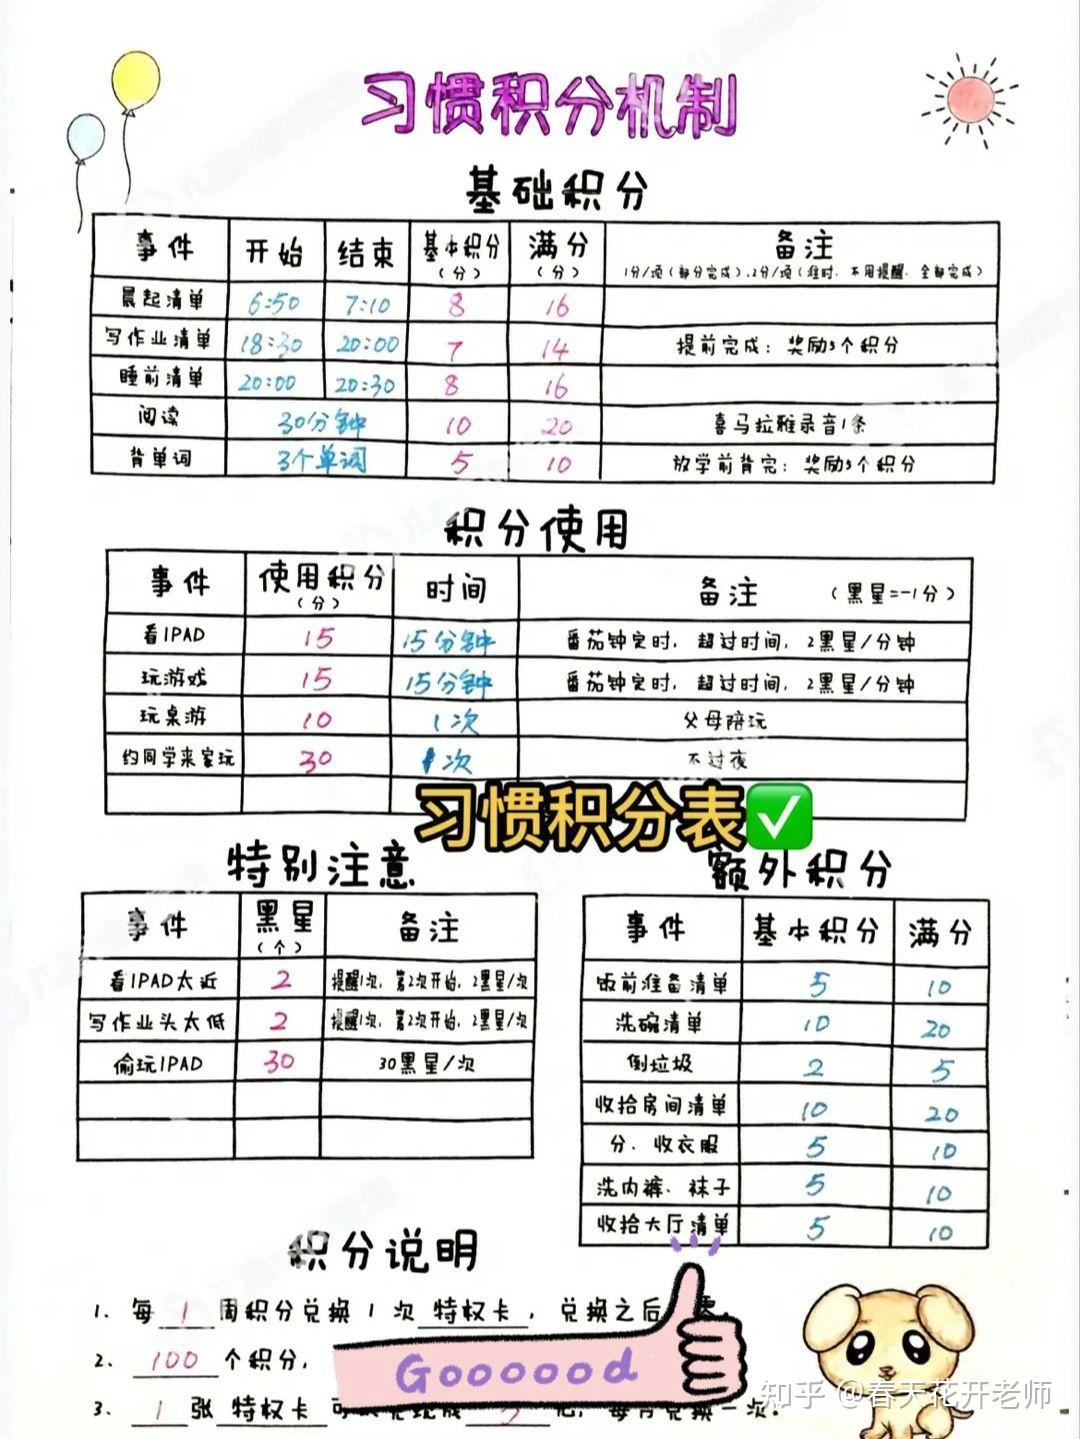 习惯积分机制
基础积分
事件 开始 结束 基本积分(分) 满分(分) 备注 1分/项(部分完成).2分/项(准时.不用提醒.全部完成)
晨起清单 6:50 7:10 8 16
写作业清单 18:30 20:00 7 14 提前完成: 奖励5个积分
睡前清单 20:00 20:30 8 16
阅读 30分钟 10 20 喜马拉雅录音1条
背单词 3个单词 5 10 放学前背完: 奖励5个积分
积分使用
事件 使用积分(分) 时间 备注 (黑星=-1分)
看IPAD 15 15分钟 番茄钟定时, 超过时间, 2黑星/分钟
玩游戏 15 15分钟 番茄钟定时, 超过时间, 2黑星/分钟
玩桌游 10 1次 父母陪玩
约同学来家玩 30 1次 不过夜
习惯积分表
特别注意
事件 黑星(个) 备注
看IPAD太近 2 提醒1次, 第2次开始, 2黑星/次
写作业头太低 2 提醒1次, 第2次开始, 2黑星/次
偷玩IPAD 30 30黑星/次
额外积分
事件 基本积分 满分
饭前准备清单 5 10
洗碗清单 10 20
倒垃圾 2 5
收拾房间清单 10 20
分、收衣服 5 10
洗内裤、袜子 5 10
收拾大厅清单 5 10
积分说明
1、每1周积分兑换1次特权卡, 兑换之后
2、100个积分,
3、1张特权卡
Goooood
知乎 @春天花开老师